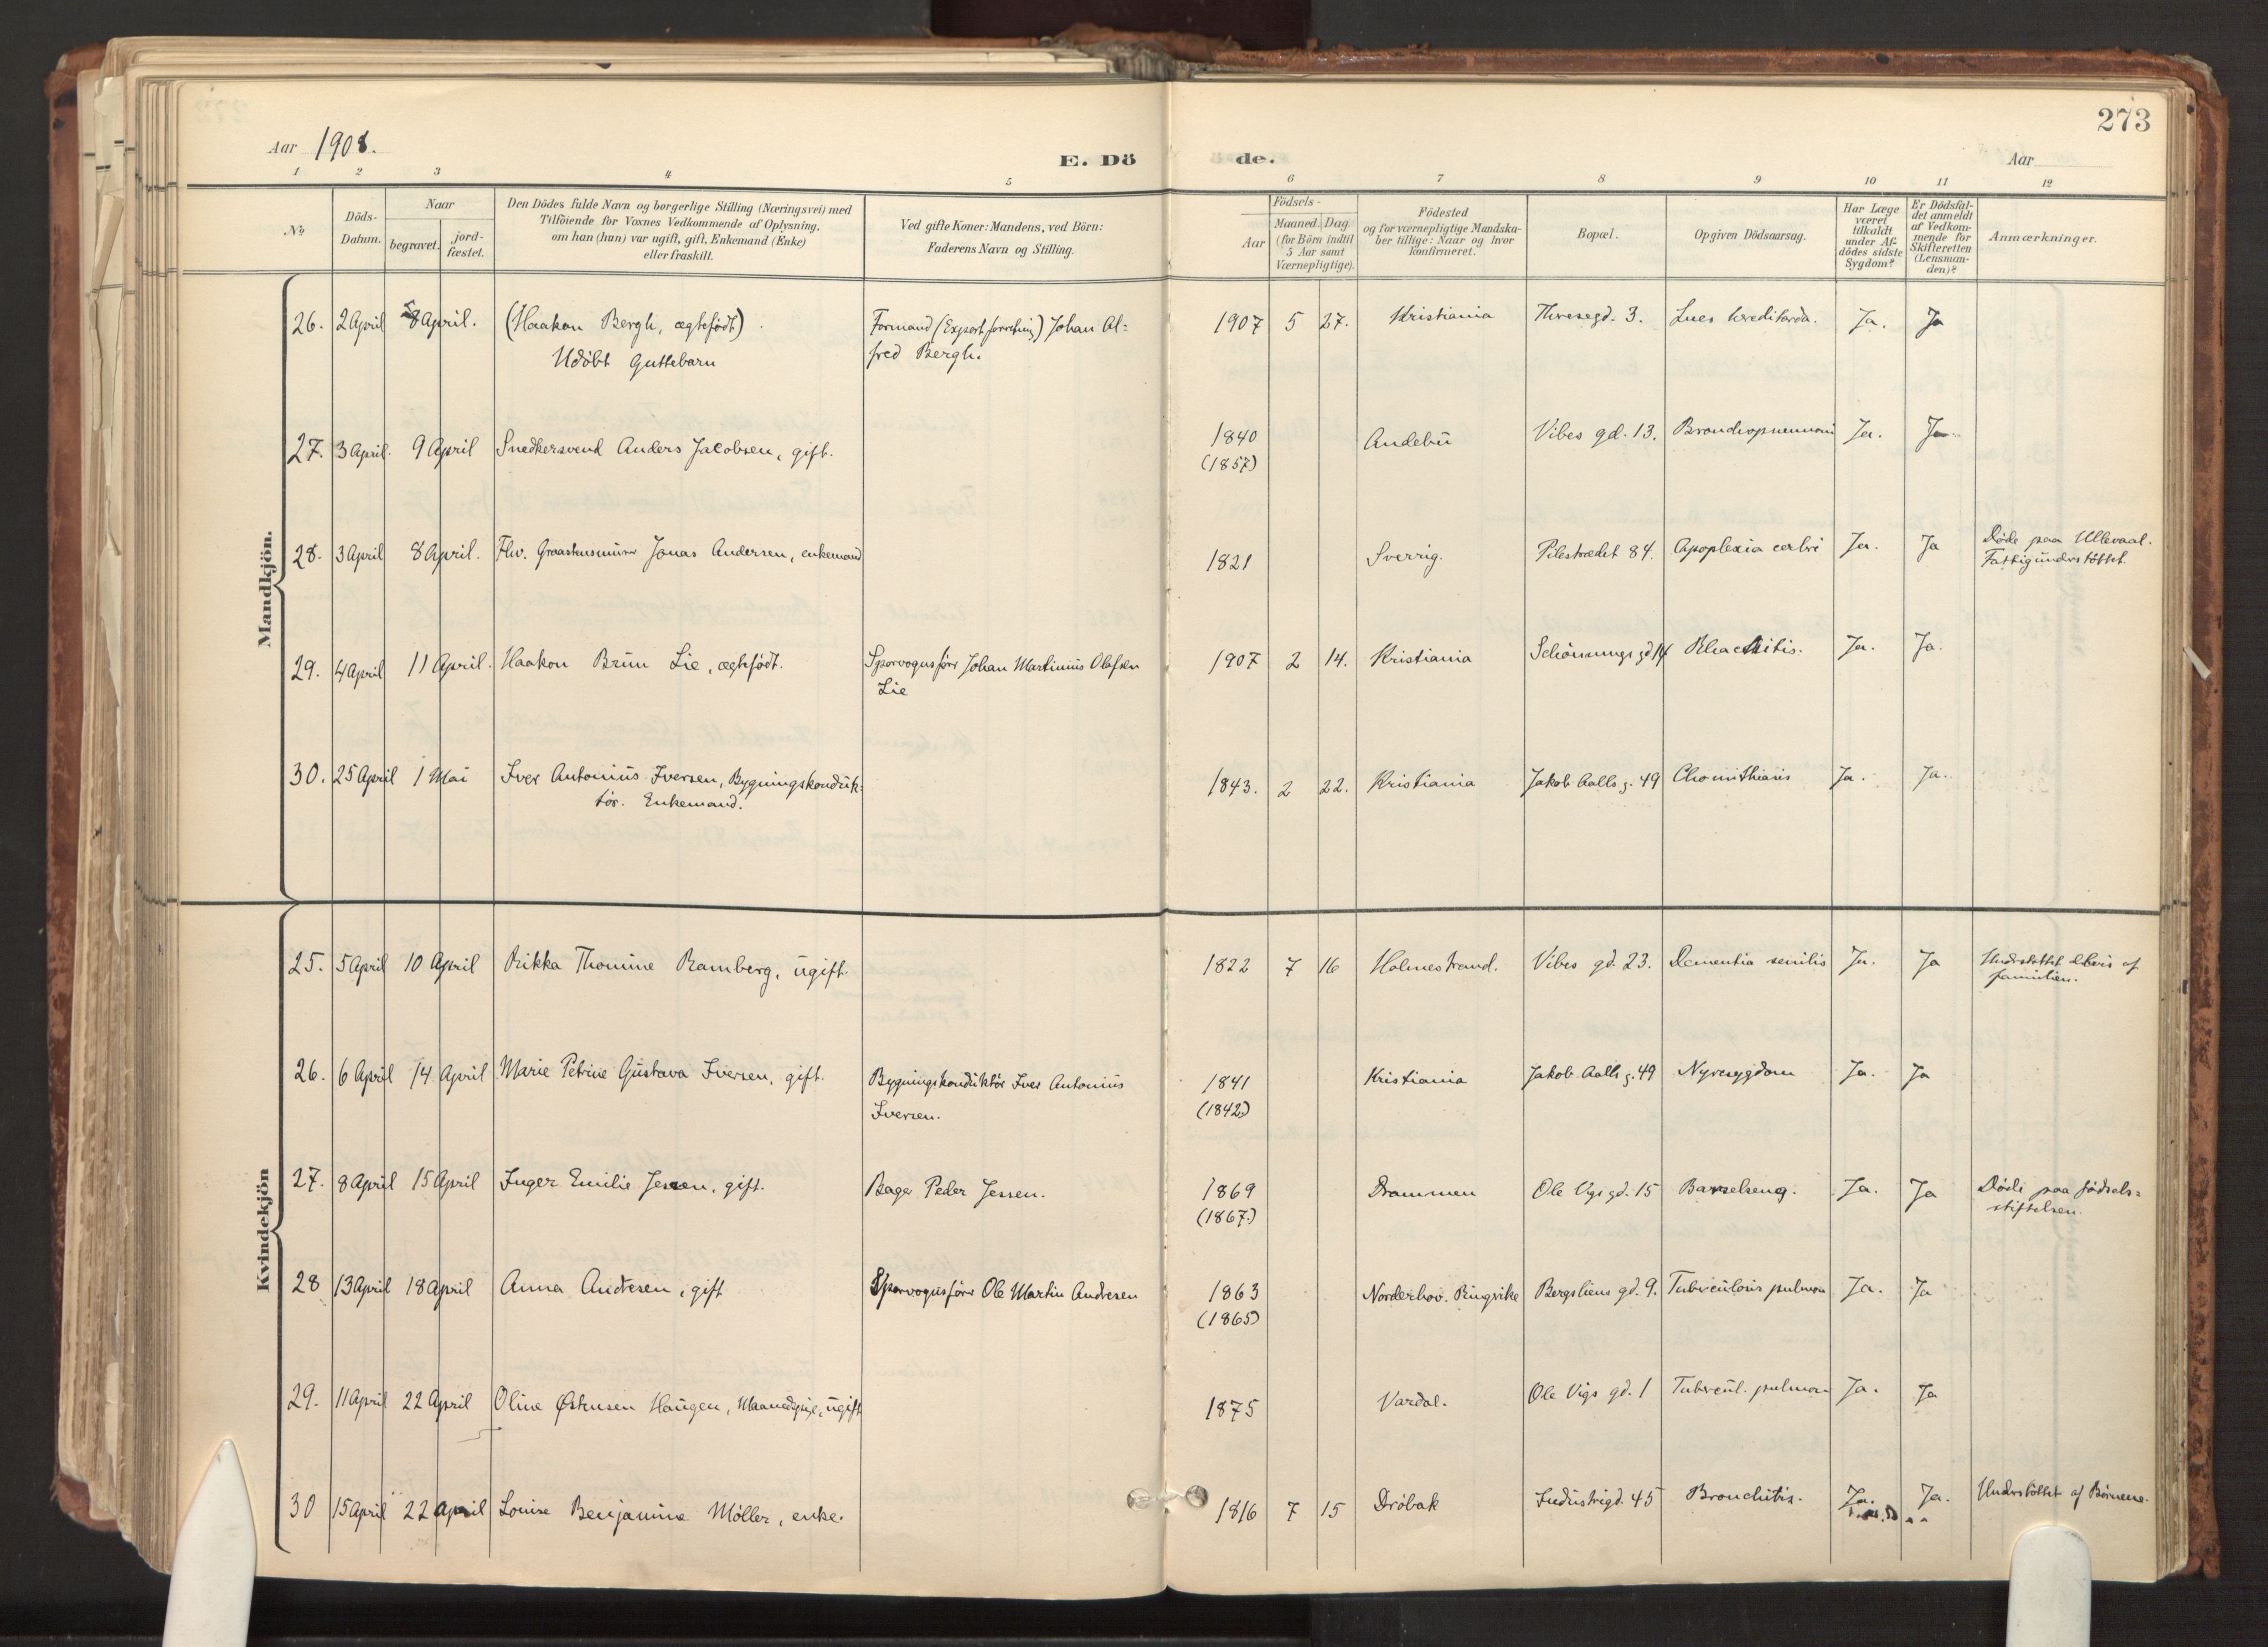 273
Aar 1908. E. Dö de. Aar
1 2 3 4 5 6 7 8 9 10 11 12
No.
Döds-
Datum.
Naar
begravet.
jord-
fæstet.
Den Dödes fulde Navn og borgerlige Stilling (Næringsvei) med
Tilföiende for Voxnes Vedkommende af Oplysning,
om han (hun) var ugift, gift, Enkemand (Enke)
eller fraskilt.
Ved gifte Koner: Mandens, ved Börn:
Faderens Navn og Stilling.
Födsels-
Aar
Maaned. Dag.
(for Börn indtil
5 Aar samt
Værnepligtige).
Födested
og for værnepligtige Mandska-
ber tillige: Naar og hvor
konfirmeret.
Bopæl.
Opgiven Dödsaarsag.
Har Læge
været
tilkaldt
under Af-
dödes sidste
Sygdom?
Er Dödsfal-
det anmeldt
af Vedkom-
mende for
Skifteretten
(Lensman-
den)?
Anmærkninger.
Mandkjön.
26. 2 April 8 April. (Haakon Bergh, ægtefödt) Formand (Exportforretning) Johan Al= 1907 5 27. Kristiania Theresegd. 3. Lues hereditarda. Ja. Ja
Udöbt Guttebarn fred Bergh.
27. 3 April. 9 April Snedkersvend Anders Jacobsen, gift. 1840 Andebu Vibes gd. 13. Bronchopneumoni Ja. Ja
(1857)
28. 3 April 8 April. Fhv. Graastensmurer Jonas Andersen, enkemand 1821 Sverrig. Pilestrædet 84. Apoplexia cerbri Ja. Ja Döde paa Ullevaal.
Fattigunderstöttet.
29. 4 April 11 April. Haakon Brun Lie, ægtefödt. Sporvognsförer Johan Martinius Olafsen 1907 2 14. Kristiania Schönnings gd 14 Rhachitis. Ja. Ja.
Lie
30. 25 April 1 Mai Iver Antonius Iversen, Bygningskonduk= 1843. 2 22. Kristiania Jakob Aalls g. 49 Ja. Ja.
tör. Enkemand.
Kvindekjön
25. 5 April 10 April Rikka Thomine Ramberg, ugift. 1822 7 16 Holmestrand. Vibes gd. 23. Dementia senilis Ja. Ja Understöttet delvis af
familien.
26. 6 April 14 April Marie Petrine Gustava Iversen, gift. Bygningskonduktör Iver Antonius 1841 Kristiania Jakob Aalls g. 49 Nyresygdom Ja. Ja
Iversen. (1842)
27. 8 April 15 April Inger Emilie Jessen, gift. Bager Peder Jessen. 1869 Drammen Ole Vigs gd. 15 Barselseng. Ja. Ja Döde paa födsels=
(1867.) stiftelsen.
28 13 April 18 April Anna Andresen, gift Sporvognsförer Ole Martin Andresen 1863 Norderhov. Ringrike Bergsliens gd. 9. Tuberculosis pulmon Ja. Ja
(1865)
29. 11 April 22 April Oline Østensen Haugen, ugift 1875 Vardal. Ole Vigs gd. 1 Tubercul. pulmon Ja. Ja
30 15 April 22 April Louise Benjamine Möller, enke. 1816 7 15 Dröbak Industrigd. 45 Bronchitis. Ja. Ja. Understöttet af Börnene.